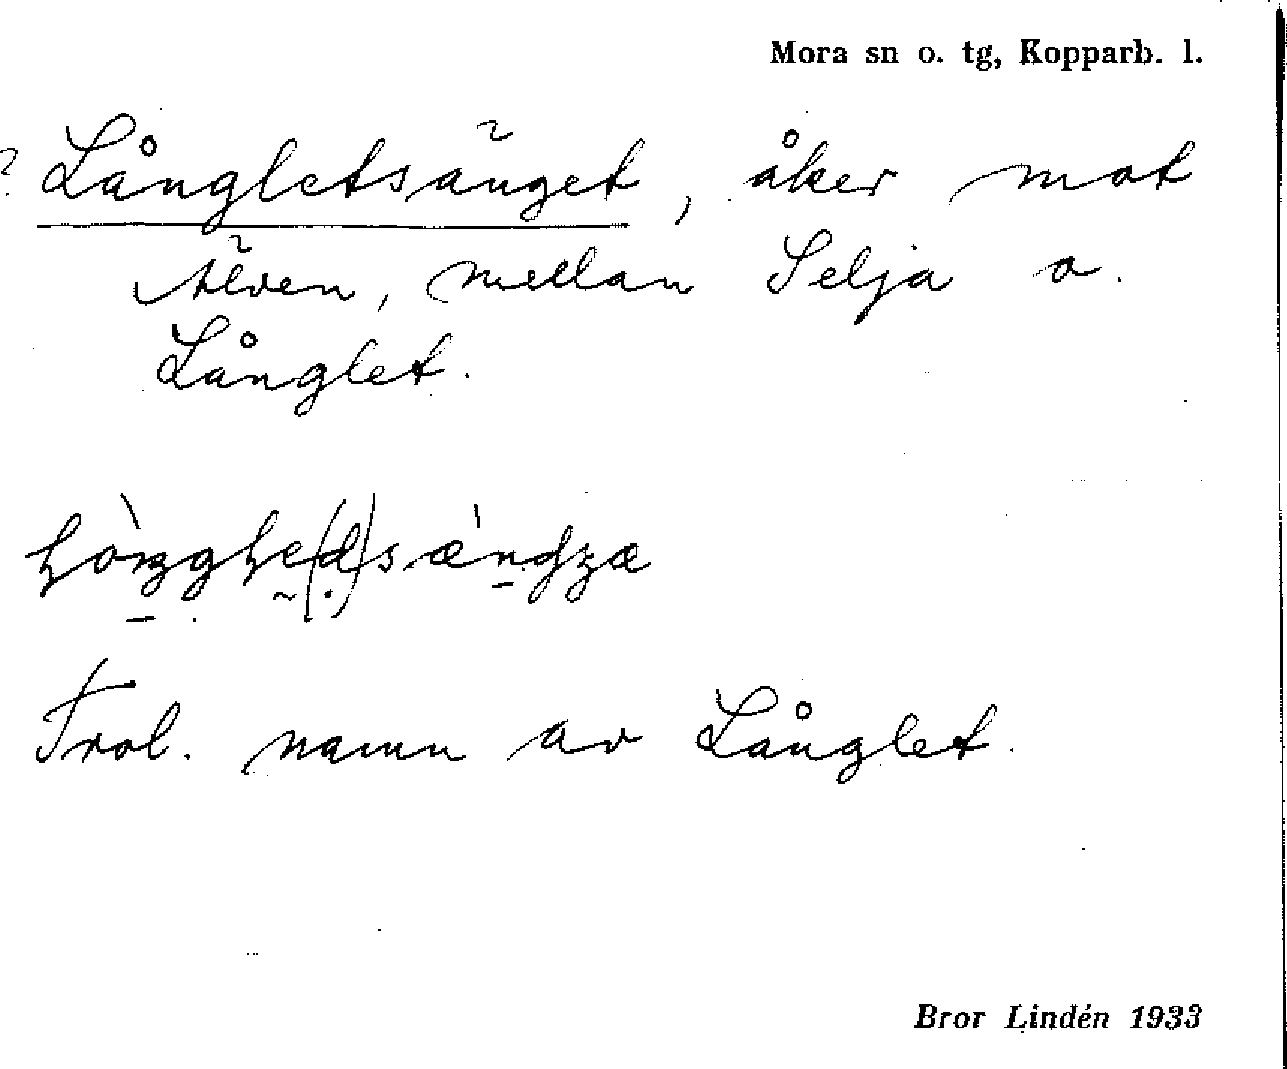 Mora sn o. tg, Kopparb. l.
? Långletsänget, åker mot
Älven, mellan Selja o.
Långlet.
Trol. namn av Långlet.
Bror Lindén 1933